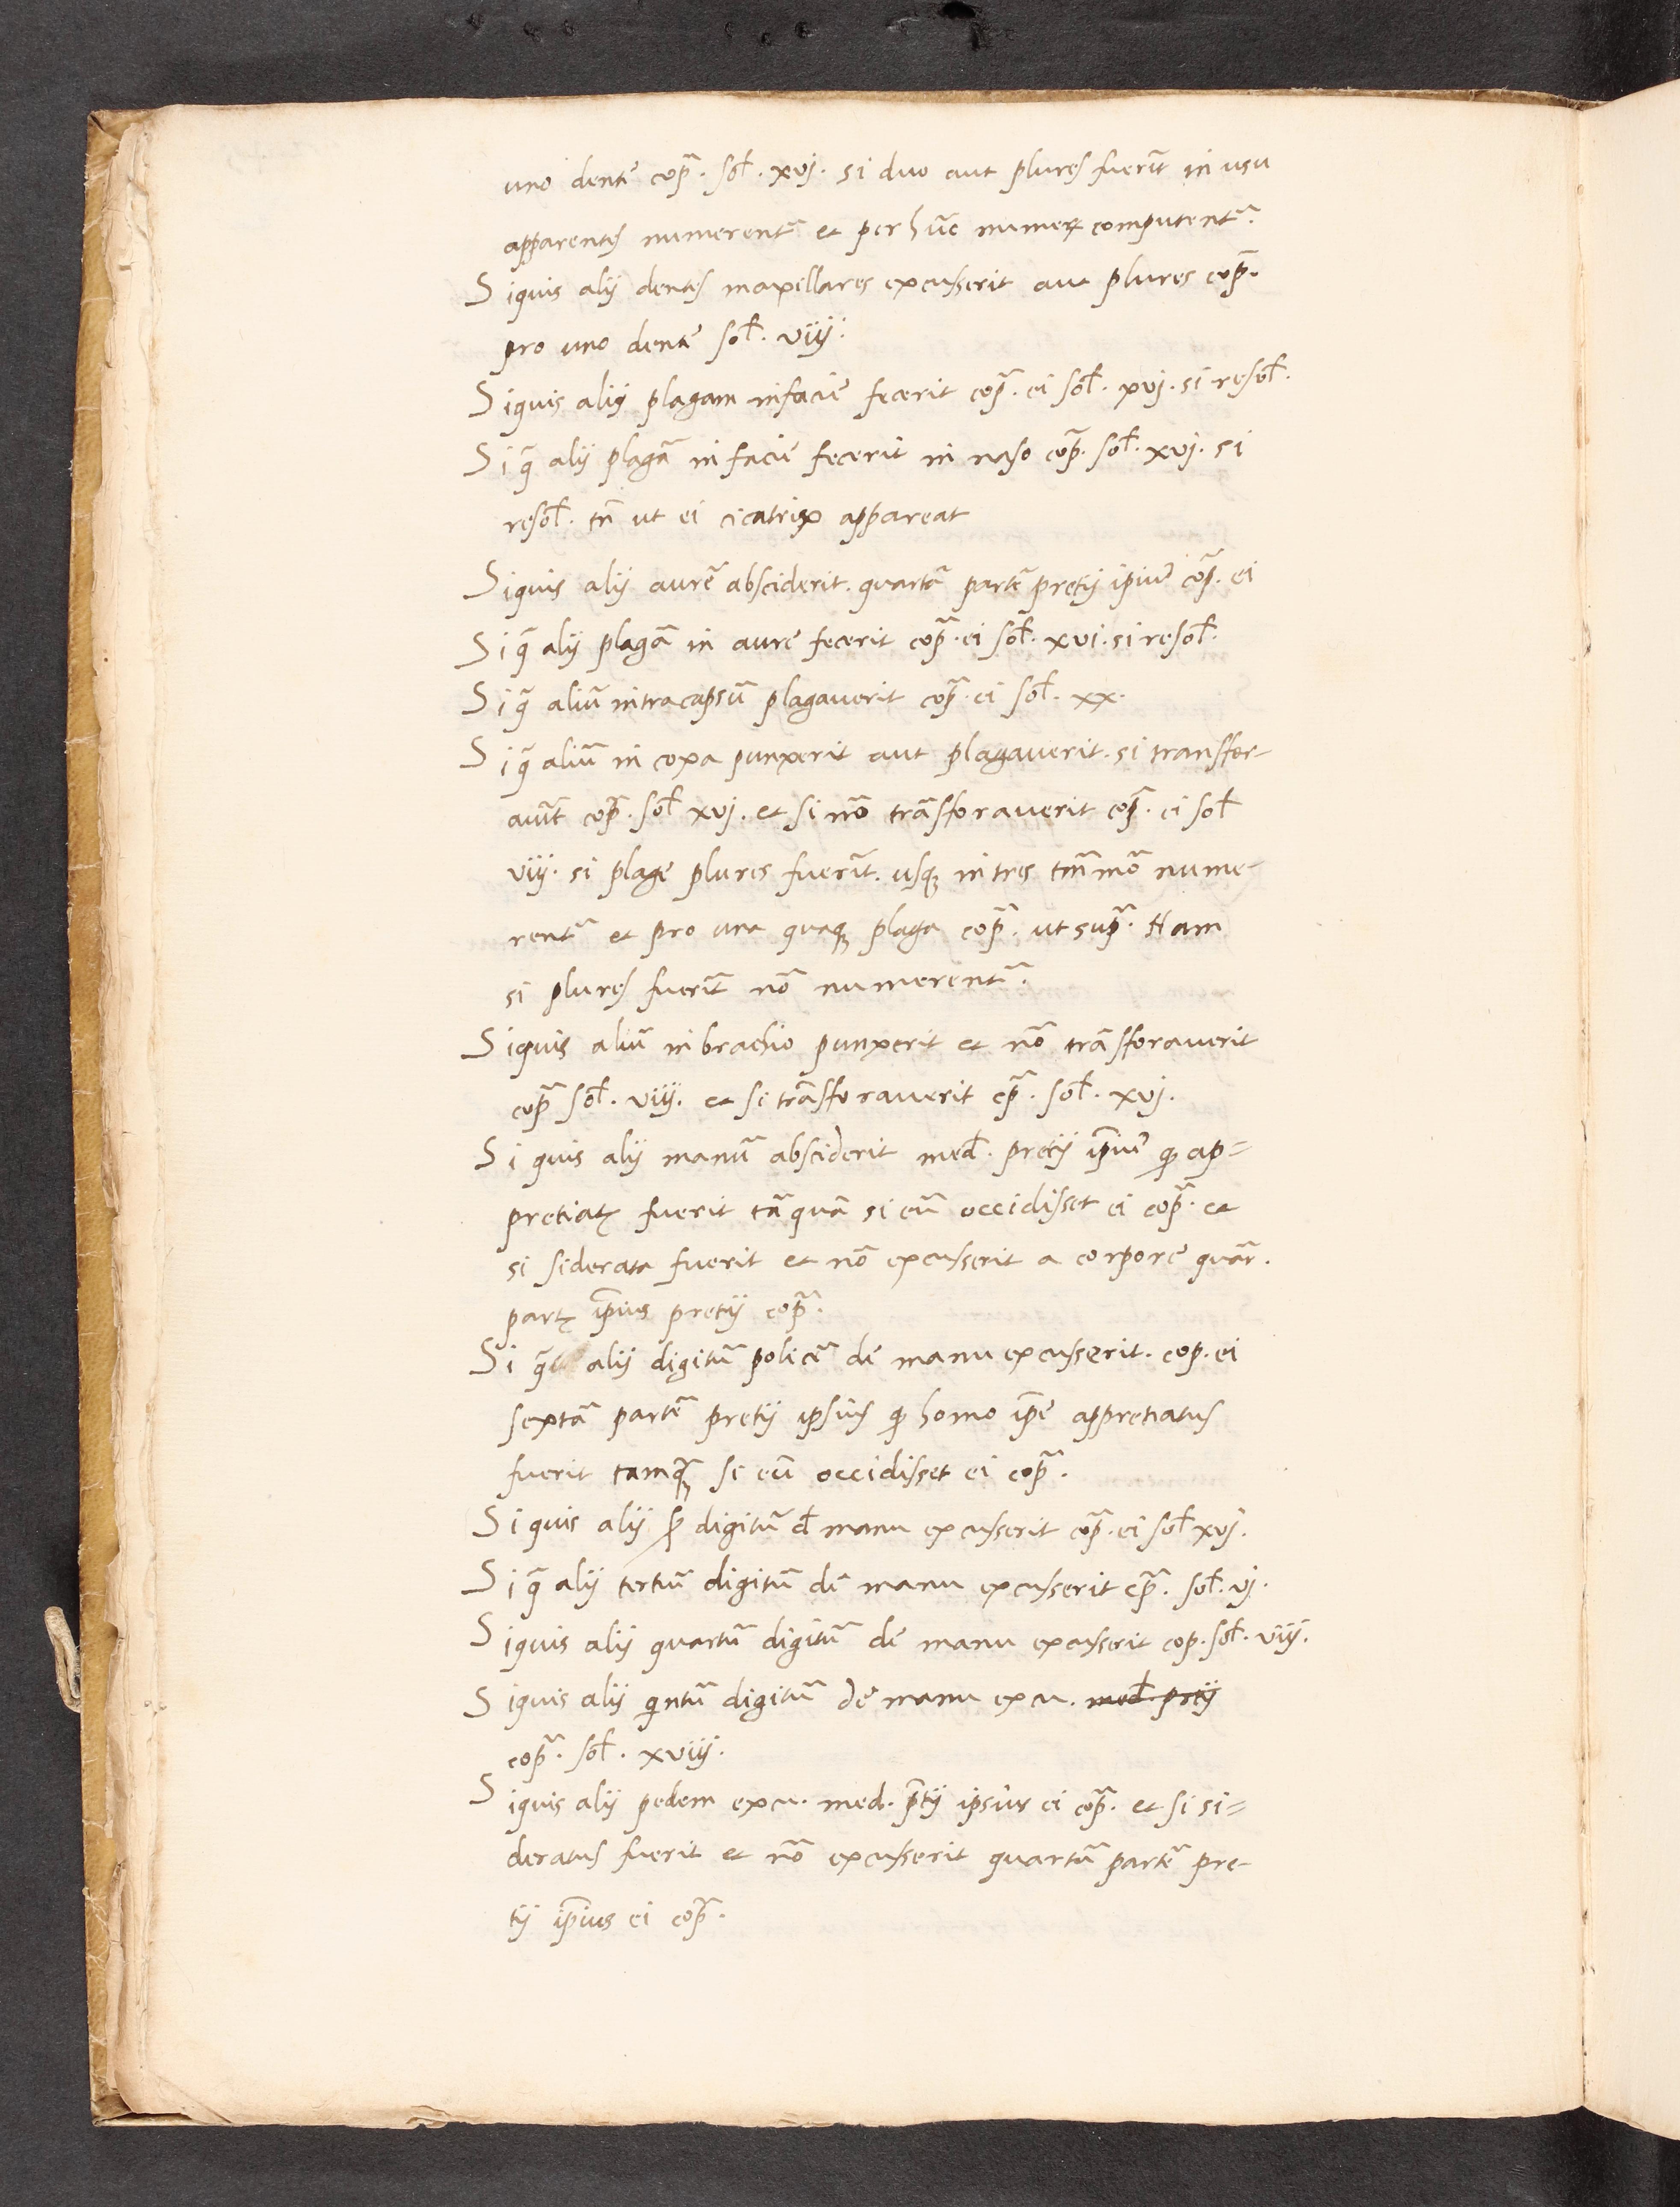 uno dentē cop̄. sol̄. xvj. si duo aut plures fuerīt in usu
apparentes numerent᷑ et per hūc numeꝝ computent᷑.
Siquis alij dentes maxillares excusserit aut plures cop̄.
pro uno dentē sol̄. viij.
Siquis alij plagam infaciē fecerit cop̄. ei sol̄. xvj. si resol̄.
Si q̄ alij plagā in faciē fecerit in naso cop̄. sol̄. xvj. si
resol̄. tn̄ ut ei cicatrix appareat
Siquis alij aurē absciderit. quartā partē pretij ipiuˀ cop̄. ei
Si q̄ alij plagā in aurē fecerit cop̄. ei sol̄. xvi. si resol̄.
Si q̄ aliū intracapsū plagaverit cop̄. ei sol̄. xx.
Si q̄ aliū in coxa punxerit aut plagaverit. si transffor-
avīt cop̄. sol̄ xvj. et si nō trāsforaverit cop̄. ei sol̄
viij. si plage plures fuerīt. usqꝫ in tres tm̄mō nume-
rent᷑ et pro una quaqꝫ plaga cop̄. ut sup̄. Nam
si plures fuerīt nō numerent᷑.
Siquis aliū inbrachio punxerit et nō trāsfforaverit
cop̄ sol̄. viij. et si trāsfforaverit cp̄. sol̄. xvj.
Si quis alij manū absciderit med̄. pretij ip̄iuˀ qͥ ap=
pretiatꝫ fuerit tā quā si eū occidisset ei cop̄. et
si siderata fuerit et nō excusserit a corporē quār.
partꝫ ip̄ius pretij cop̄.
Si q̄ alij digitū policē dē manu excusserit. cop. ei
sextā partē pretij ipsius qͥ homo ip̄e appretiatus
fuerit tamqꝫ si eū occidisset ei cop̄.
Si quis alij ẜ digitū d̄ manu excusserit cop̄. ei sol̄ xvj.
Si q̄ alij tertiū digitū dē manu excusserit cp̄. sol̄. vj.
Siquis alij quartū digitū dē manu excusserit cop. sol̄. viij.
Siquis alij qͥntū digitū dē manu excu. med̄. prtij
cop̄. sol̄. xviij.
Siquis alij pedem excu. med. p̄tij ipsius ei cop̄. et si si=
deratus fuerit et nō excusserit quartū partē pre-
tij ip̄ius ei cop̄.